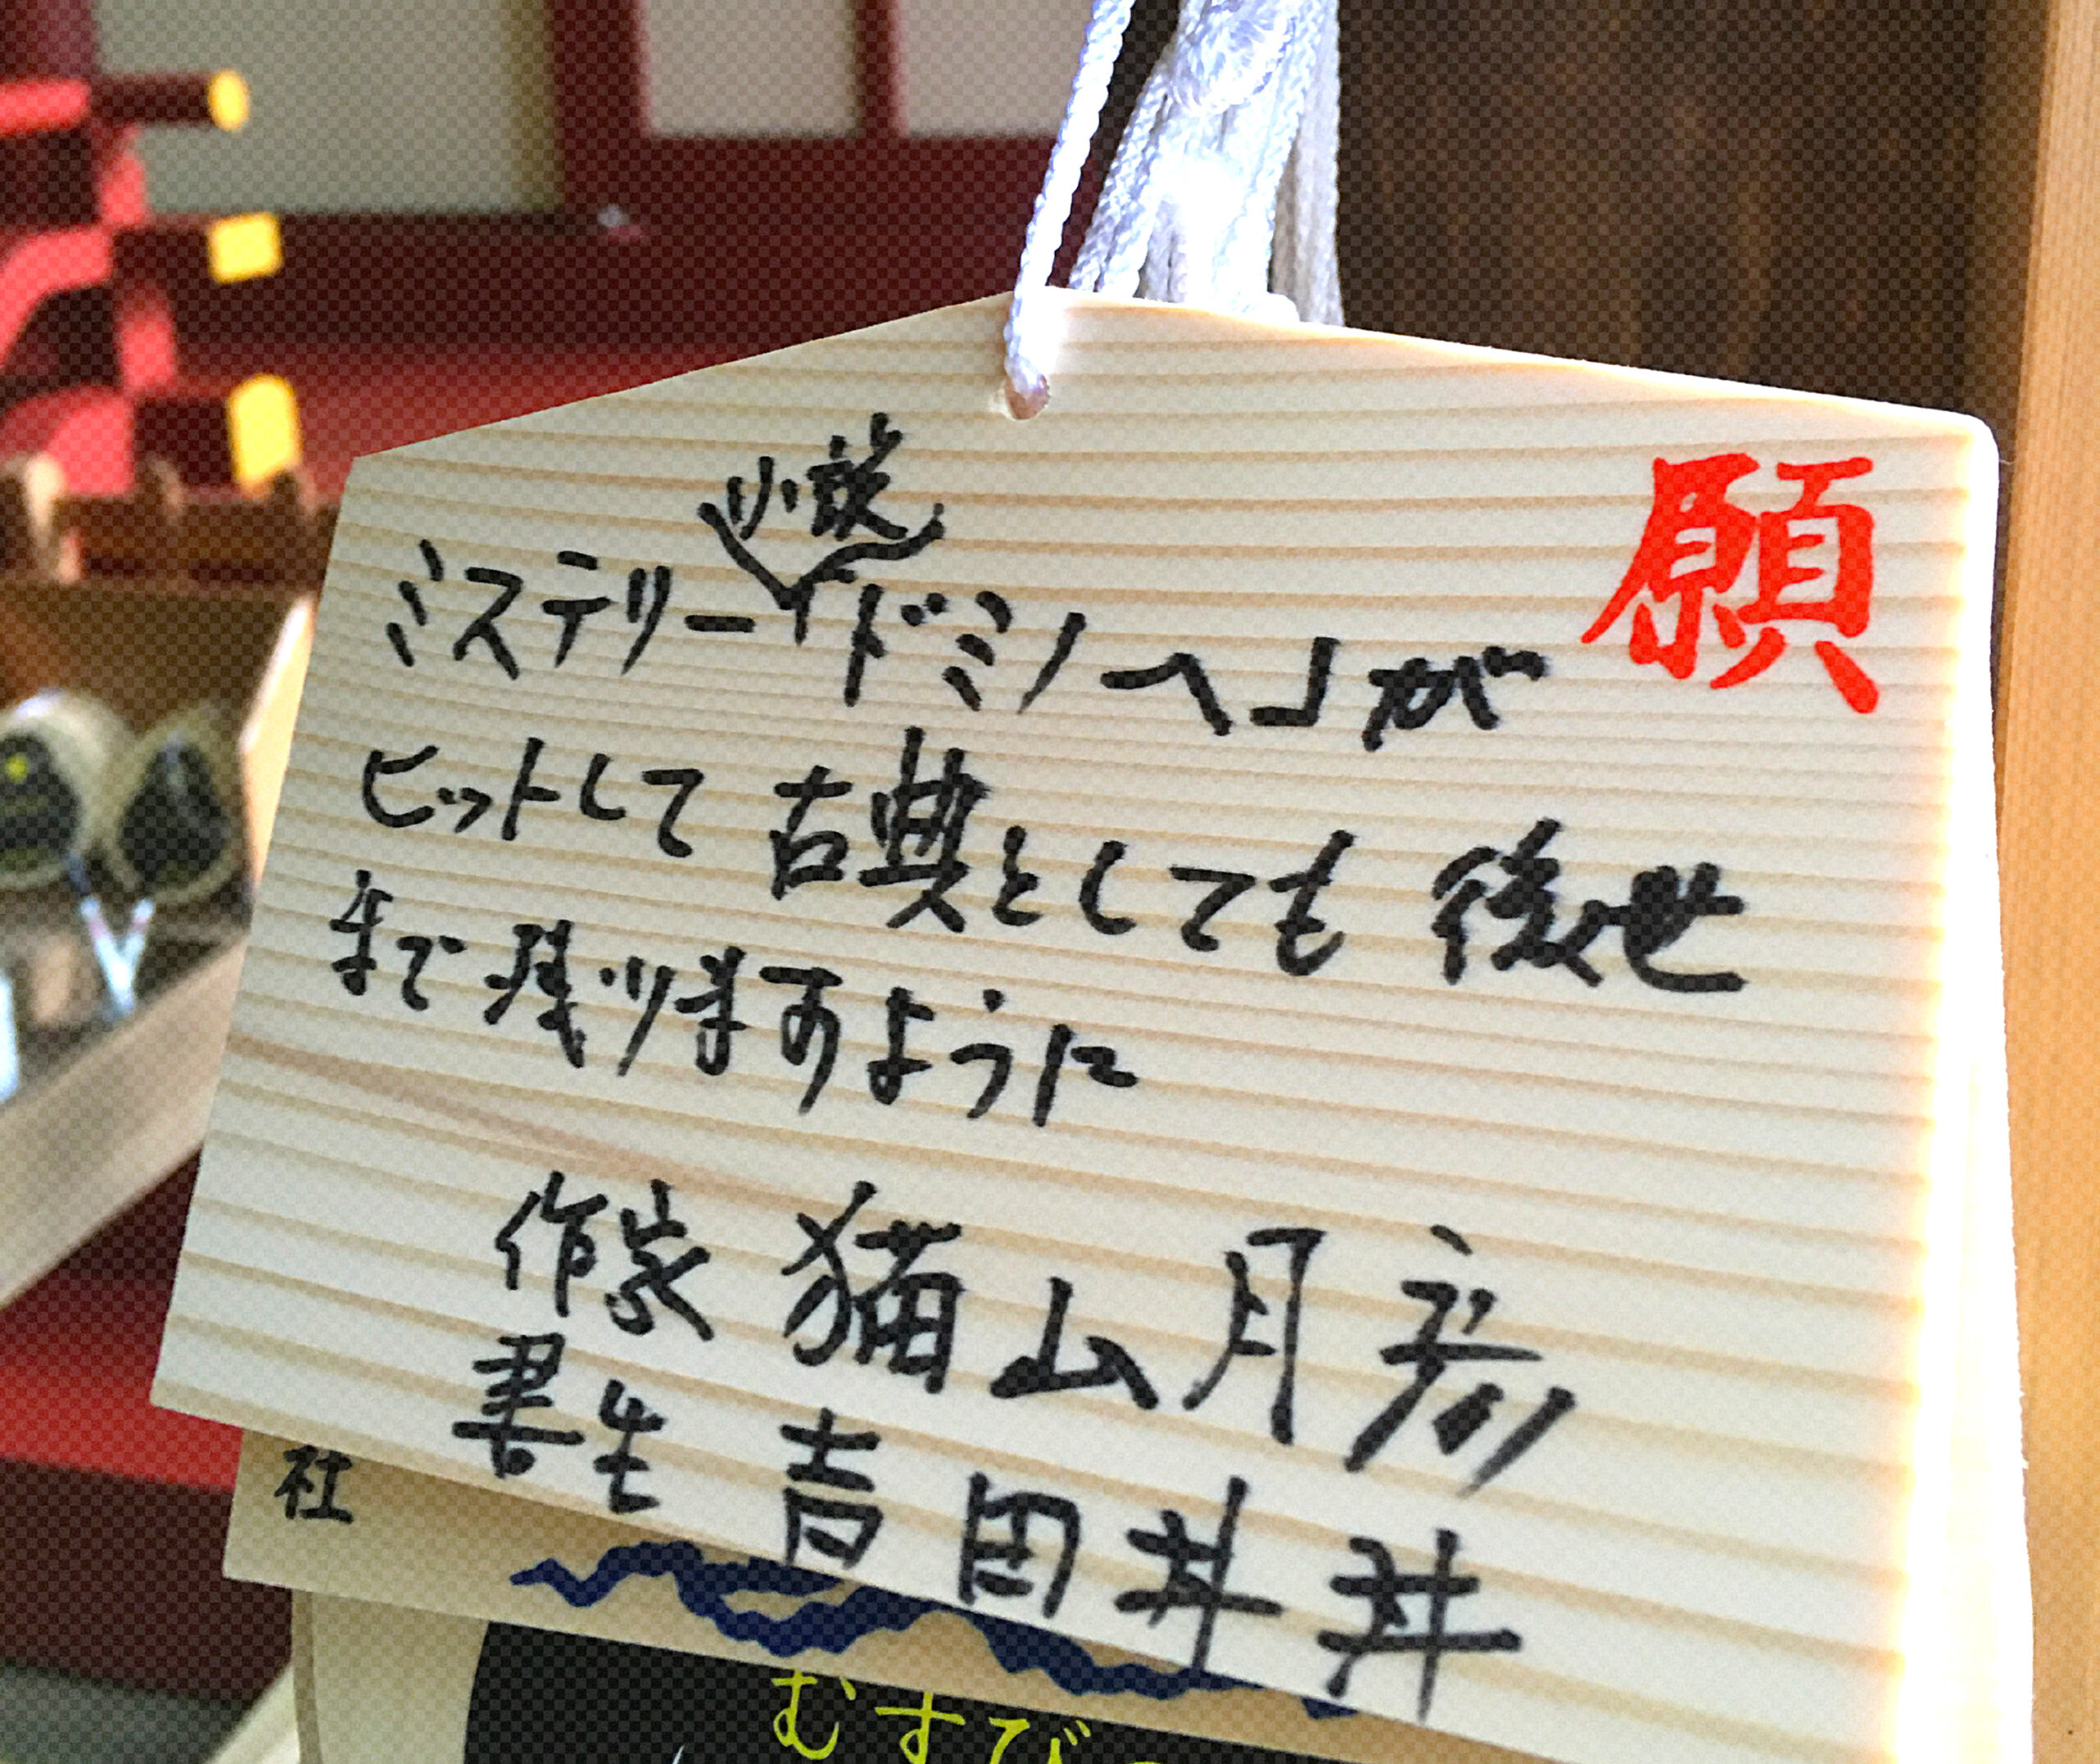 願
小説
ミステリー「ドミノへ」が
ヒットして古典としても後世
まで残りますように
作家 猫山月彦
書生 吉田丼丼
社
むすび